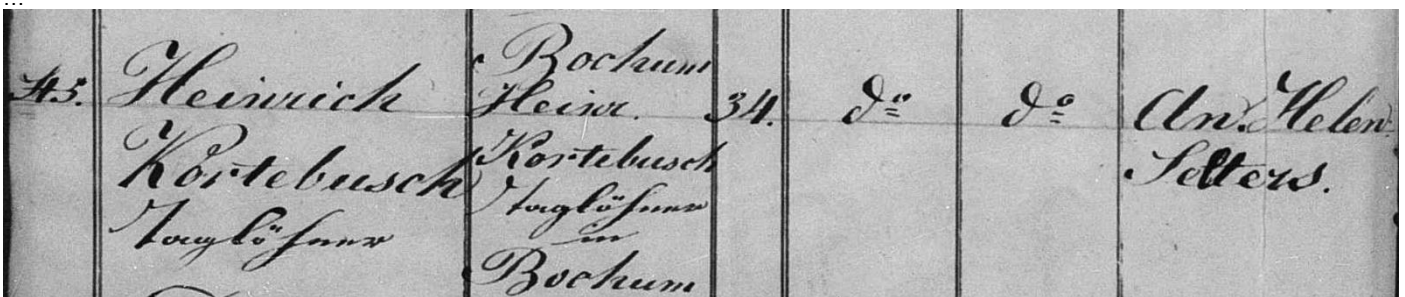 ...
45.
Heinrich
Kortebusch
Taglöhner
Bochum
Heinr.
Kortebusch
Taglöhner
in
Bochum
34.
do
do
An. Helen
Selters.